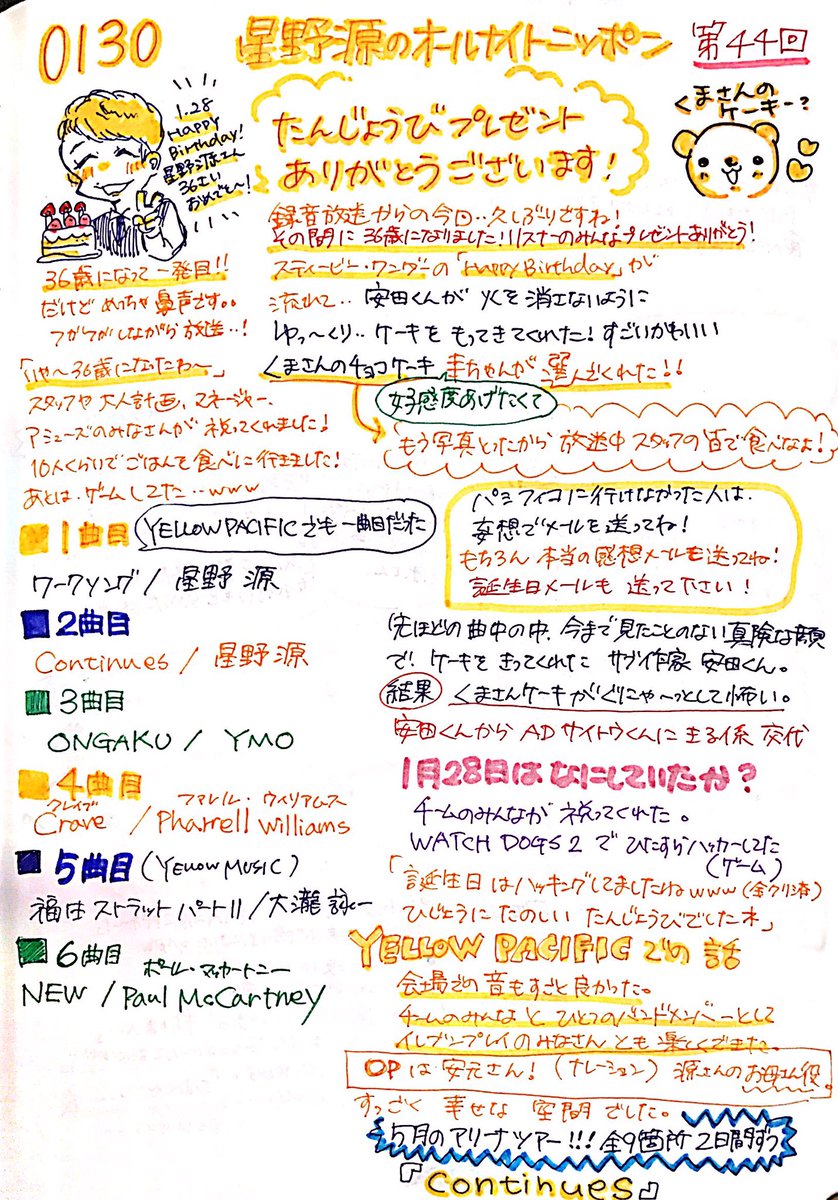 0130 星野源のオールナイトニッポン 第44回
1.28
Happy
Birthday!
星野源さん
36さい
おめでと〜!
たんじょうびプレゼント
ありがとうございます!
くまさんの
ケーキー?
録音放送からの今回..久しぶりですね!
その間に36歳になりました!リスナーのみんなプレゼントありがとう!
スティービー・ワンダーの「Happy Birthday」が
流れて..安田くんが火を消さないように
ゆっ〜くり..ケーキをもってきてくれた!すごいかわいい
くまさんのチョコケーキ 幸ちゃんが選んでくれた!!
好感度あげたくて
「もう写真とったから放送中スタッフの皆で食べなよ!」
36歳になって一発目!!
だけどめっちゃ鼻声です..
つがつがしながら放送..!
「いや〜36歳になったわ〜」
スタッフや大人計画、マネージャー、
アミューズのみなさんが祝ってくれました!
10人くらいでごはんを食べに行きました!
あとは、ゲームしてた..www
パシフィコに行けなかった人は、
妄想でメールを送ってね!
もちろん本当の感想メールも送ってね!
誕生日メールも送って下さい!
1曲目 YELLOW PACIFICでも一曲目だった
ワークソング / 星野源
2曲目
Continues / 星野源
3曲目
ONGAKU / YMO
4曲目
クレイブ ファレル・ウィリアムス
Crave / Pharrell Williams
5曲目 (YELLOW MUSIC)
福生ストラット パートII / 大瀧詠一
6曲目
ポール・マッカートニー
NEW / Paul McCartney
先ほどの曲中の中、今まで見たことのない真険な顔
で、ケーキをきってくれた サブ作家 安田くん。
結果 くまさんケーキがぐにゃ〜っとして怖い。
安田くんから ADサイトウくんに 主る係 交代
1月28日はなにしていたか?
チームのみんなが祝ってくれた。
WATCH DOGS 2 でひたすらハッカーしてた
(ゲーム)
「誕生日はハッキングしてましたねwww(全クリ済)
ひじょうにたのしいたんじょうびでしたネ」
YELLOW PACIFICでの話
会場での音もすごく良かった。
チームのみんなとひとつのバンドメンバーとして
イレブンプレイのみなさんとも楽しくできた。
OPは安元さん!(ナレーション)源さんのお母さん役。
すっごく幸せな空間でした。
5月のアリーナツアー!!!全9箇所2日間ずつ
『continues』